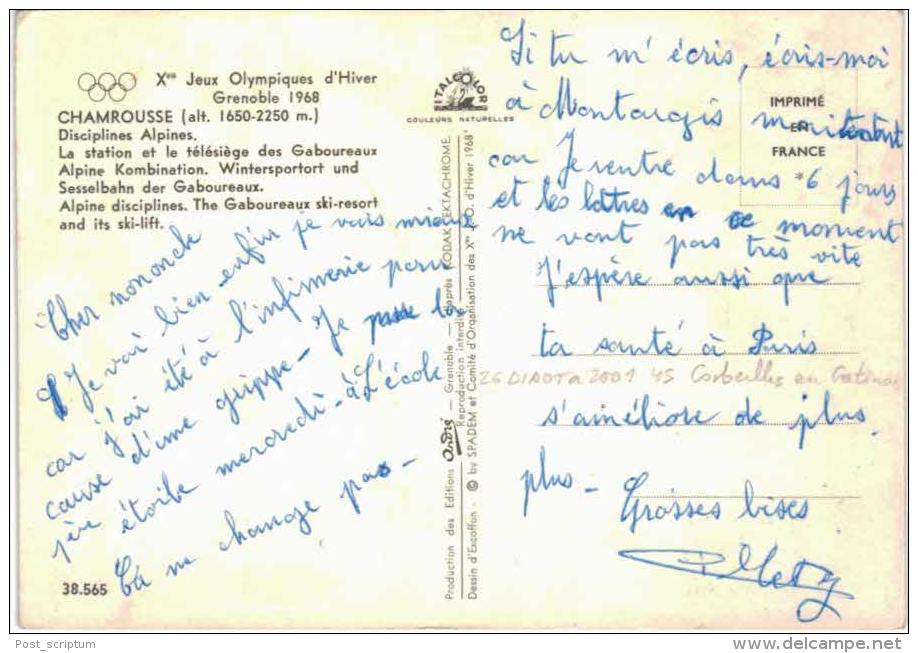 Xes Jeux Olympiques d'Hiver
Grenoble 1968
CHAMROUSSE (alt. 1650-2250 m.)
Disciplines Alpines.
La station et le télésiège des Gaboureaux
Alpine Kombination. Wintersportort und
Sesselbahn der Gaboureaux.
Alpine disciplines. The Gaboureaux ski-resort
and its ski-lift.
Cher nononcle
Je vai bien - enfin je vais mieux
car j'ai été à l'infirmerie pour
cause d'une grippe - Je passe la
1ère étoile mercredi - à L'école
Ça ne change pas -
38.565
ITALCOLOR
COULEURS NATURELLES
Production des Editions André — Grenoble — d'après KODAK EKTACHROME.
Reproduction interdite
Dessin d'Excoffon - © by SPADEM et Comité d'Organisation des Xes J. O. d'Hiver 1968"
IMPRIMÉ
EN
FRANCE
Si tu m'écris, écris-moi
à Montargis maintenant
car Je rentre dans 6 jours
et les lettres en ce moment
ne vont pas très vite
J'espère aussi que
ta santé à Paris
26 2001 45 Corbeilles en Gatinais
s'améliore de plus
plus -
Grosses bises
Post_scriptum
www.delcampe.net